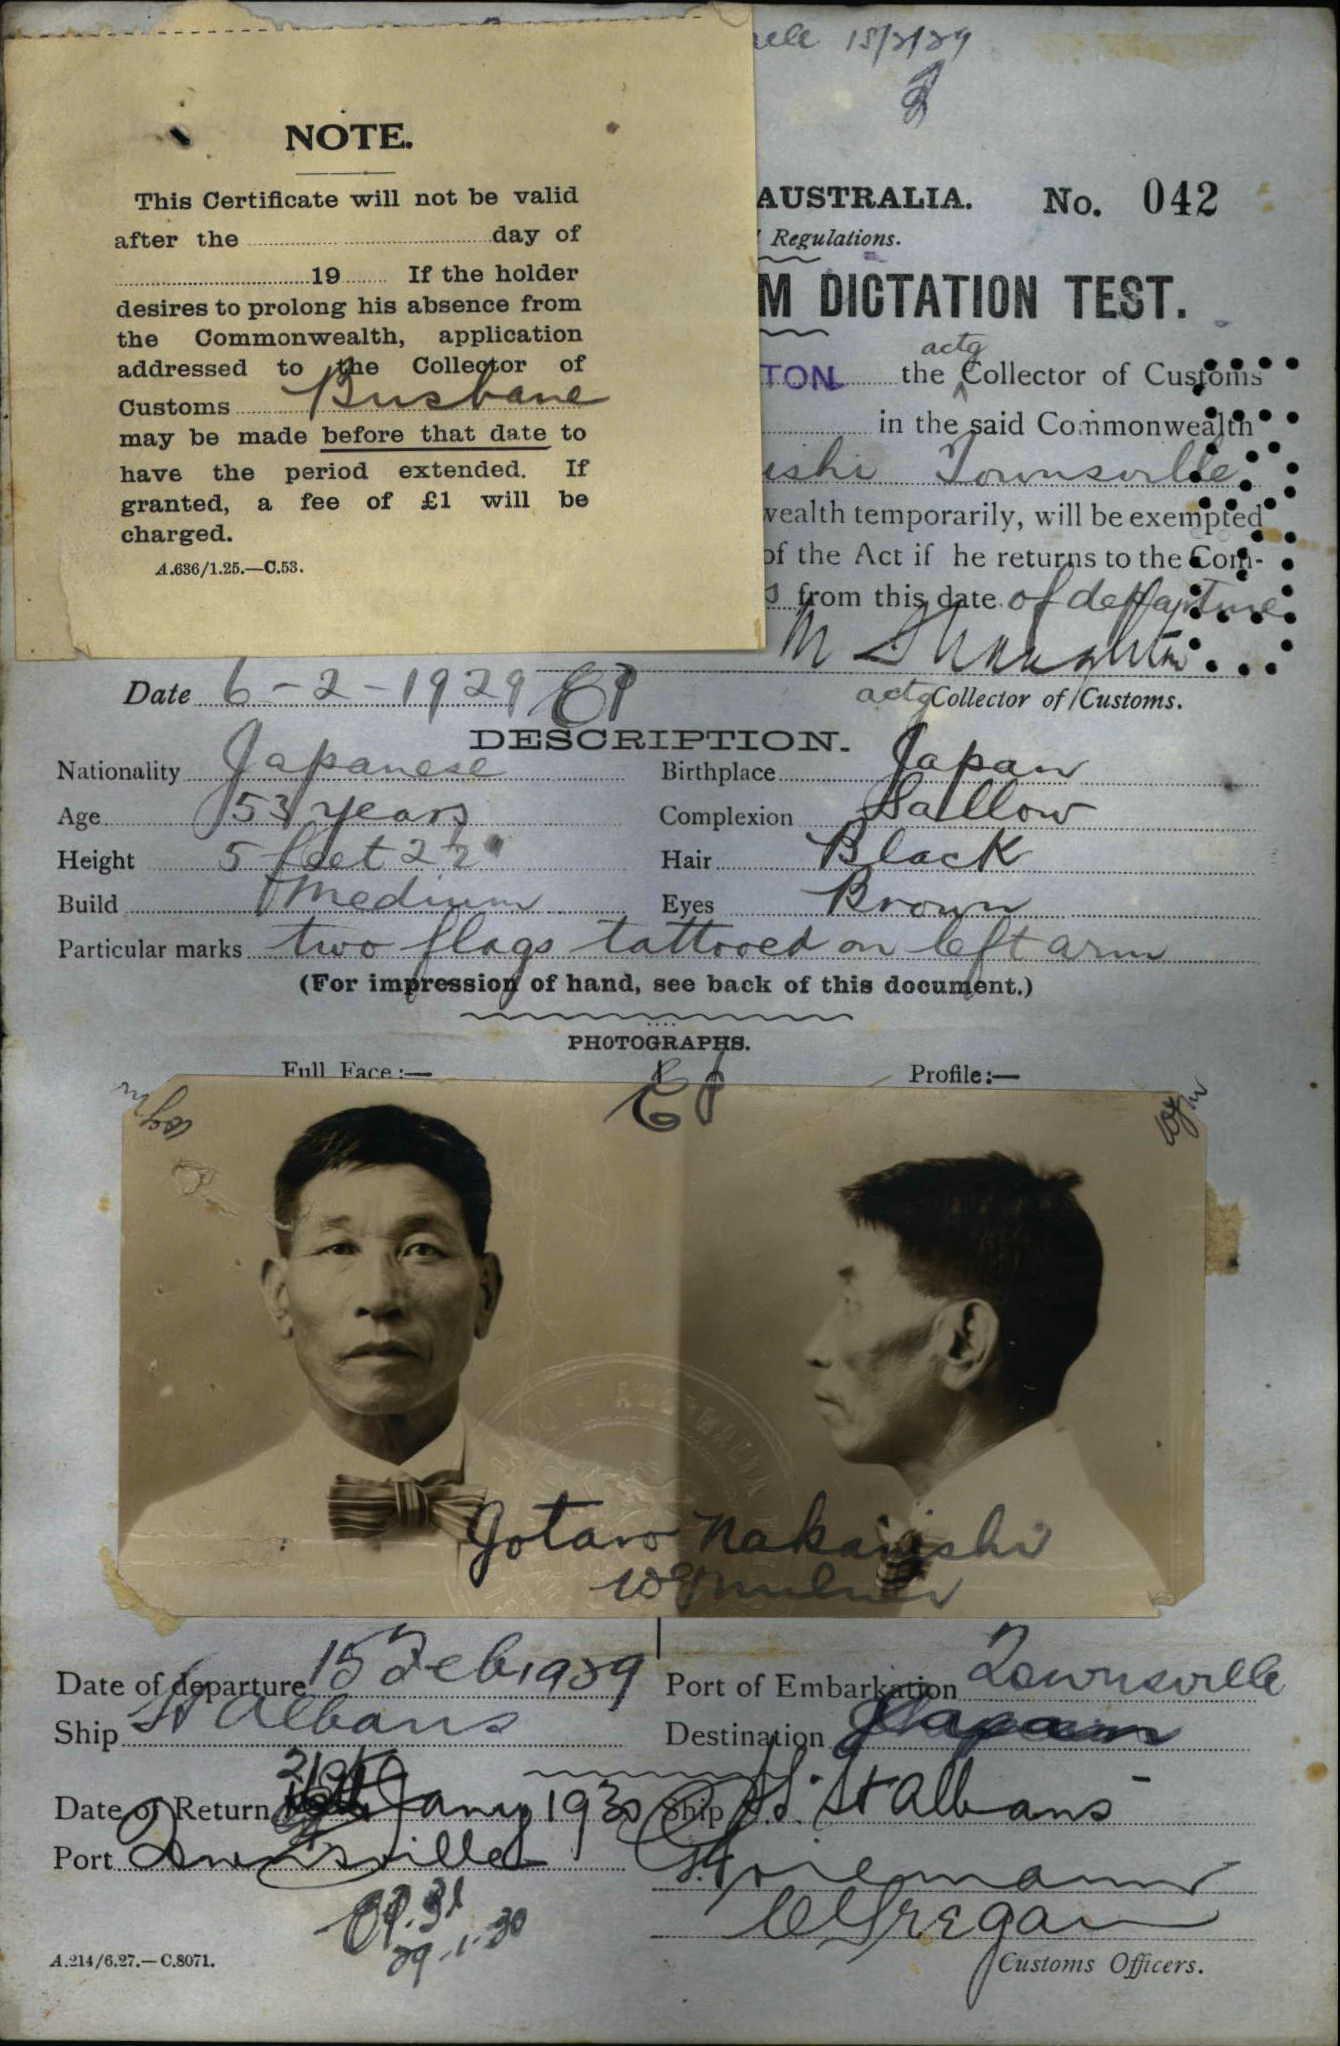 15/2/29
NOTE.
This Certificate will not be valid
after the day of
19 If the holder
desires to prolong his absence from
the Commonwealth, application
addressed to the Collector of
Customs Brisbane
may be made before that date to
have the period extended. If
granted, a fee of £1 will be
charged.
A.636/1.25.—C.53.
AUSTRALIA. No. 042
Regulations.
M DICTATION TEST.
TON the actg Collector of Customs
in the said Commonwealth
ishi Townsville
wealth temporarily, will be exempted
of the Act if he returns to the Com-
s from this date of departure
Date 6-2-1929
actg Collector of Customs.
DESCRIPTION.
Nationality Japanese Birthplace Japan
Age 53 years Complexion Sallow
Height 5 feet 2½" Hair Black
Build Medium Eyes Brown
Particular marks two flags tattooed on left arm
(For impression of hand, see back of this document.)
PHOTOGRAPHS.
Full Face:— Profile:—
Gotaro Nakanishi
Date of departure 15 Feb 1929 Port of Embarkation Townsville
Ship St Albans Destination Japan
Date of Return 21st Jany 1930 Ship S.S. St Albans
Port Townsville
29-1-30
Customs Officers.
A.214/6.27.—C.8071.